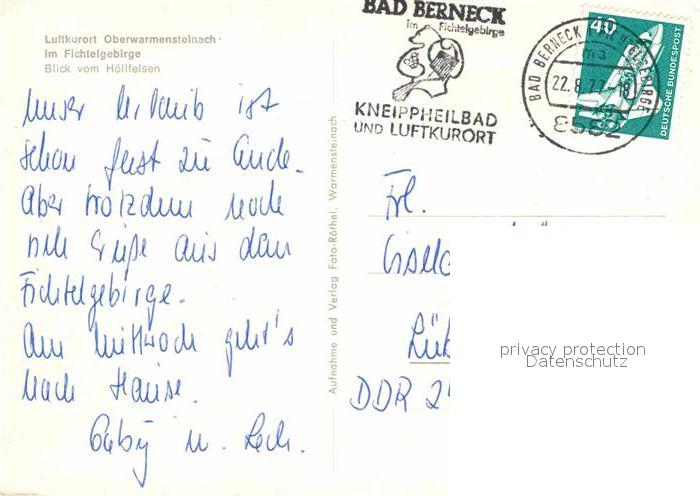 Luftkurort Oberwarmensteinach
im Fichtelgebirge
Blick vom Höllfelsen
Unser Urlaub ist
schon fast zu Ende.
Aber trotzdem noch
viele Grüße aus dem
Fichtelgebirge.
Am Mittwoch geht's
nach Hause.
Gaby u.
Aufnahme und Verlag Foto-Röthel, Warmensteinach
BAD BERNECK
im Fichtelgebirge
KNEIPPHEILBAD
UND LUFTKURORT
BAD BERNECK
22.8.77
8582
40
DEUTSCHE BUNDESPOST
Frl.
DDR
privacy protection
Datenschutz